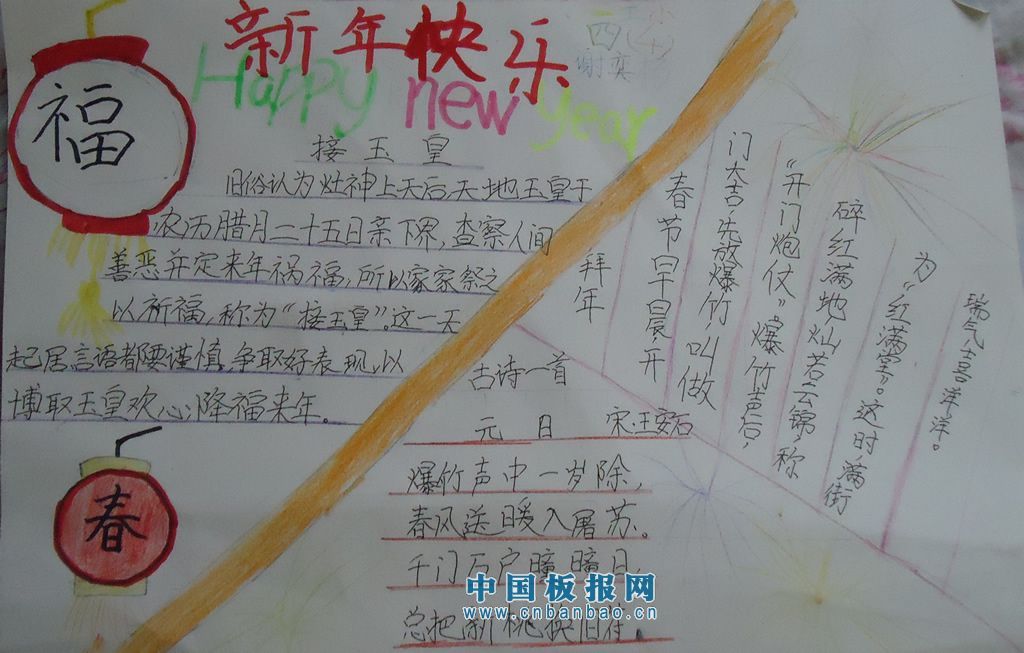 新年快乐
Happy new year
四(4)
谢奕
福
接玉皇
旧俗认为灶神上天后,天地玉皇于
农历腊月二十五日亲下界,查察人间
善恶并定来年祸福,所以家家祭之
以祈福,称为“接玉皇”。这一天
起居言语都要谨慎,争取好表现,以
博取玉皇欢心,降福来年。
春
拜年
春节早晨,开
门大吉,先放爆竹,叫做
“开门炮仗”。爆竹声后,
碎红满地灿若云锦,称
为“红满堂”。这时,满街
瑞气,喜洋洋。
古诗一首
元日 宋:王安石
爆竹声中一岁除,
春风送暖入屠苏。
千门万户瞳瞳日,
总把新桃换旧符。
中国板报网
www.cnbanbao.cn